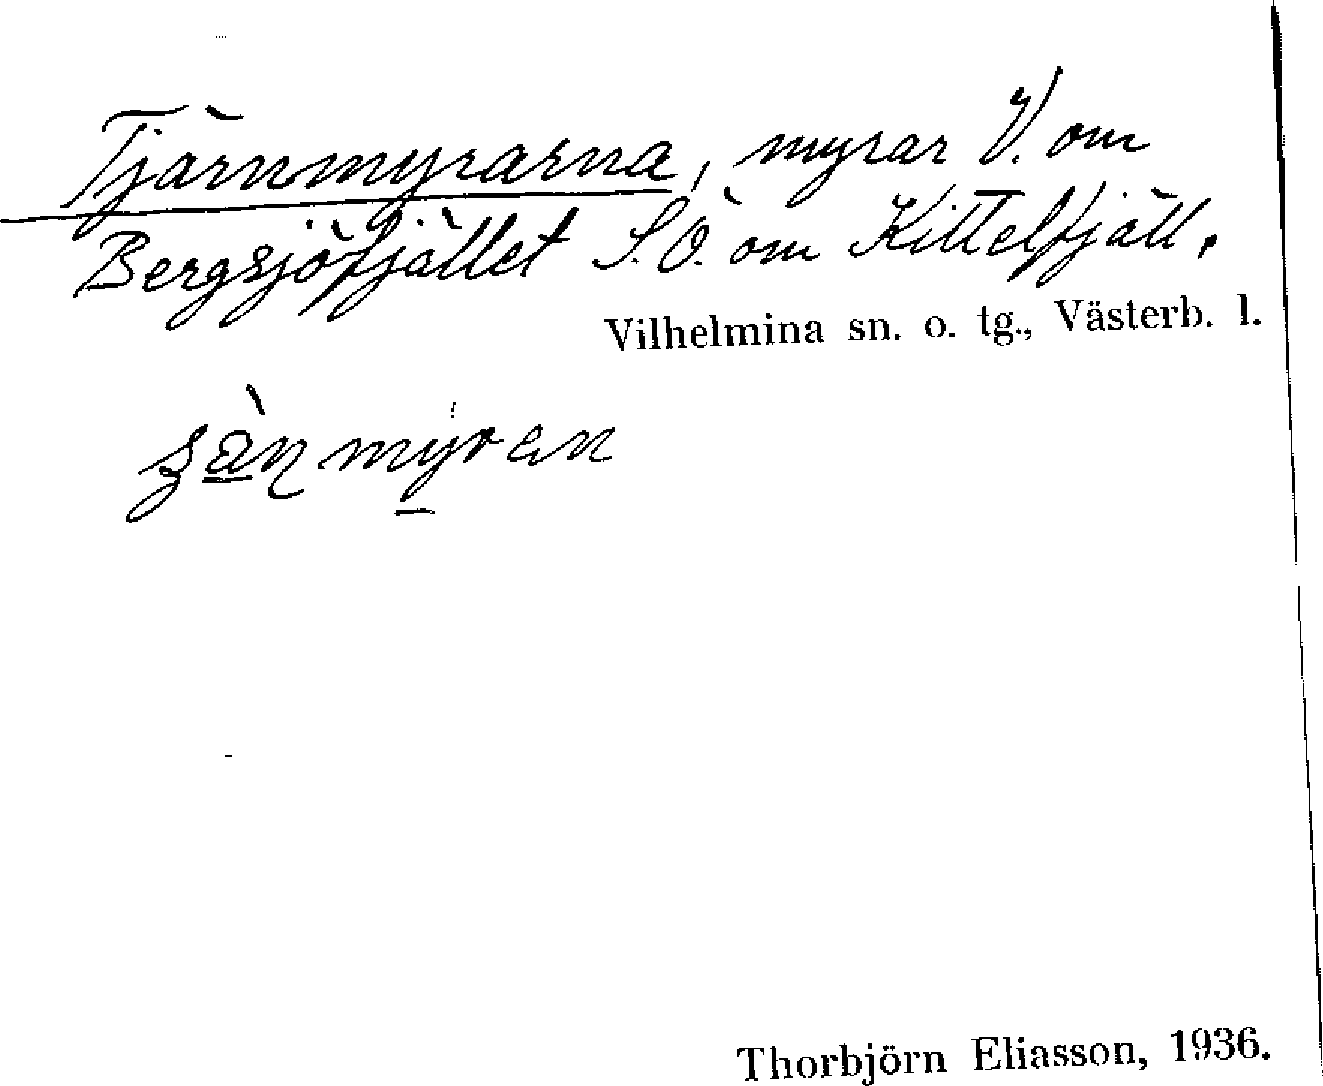 Tjärnmyrarna, myrar V. om
Bergsjöfjället S.Ö. om Kittelfjäll.
Vilhelmina sn. o. tg., Västerb. l.
Thorbjörn Eliasson, 1936.